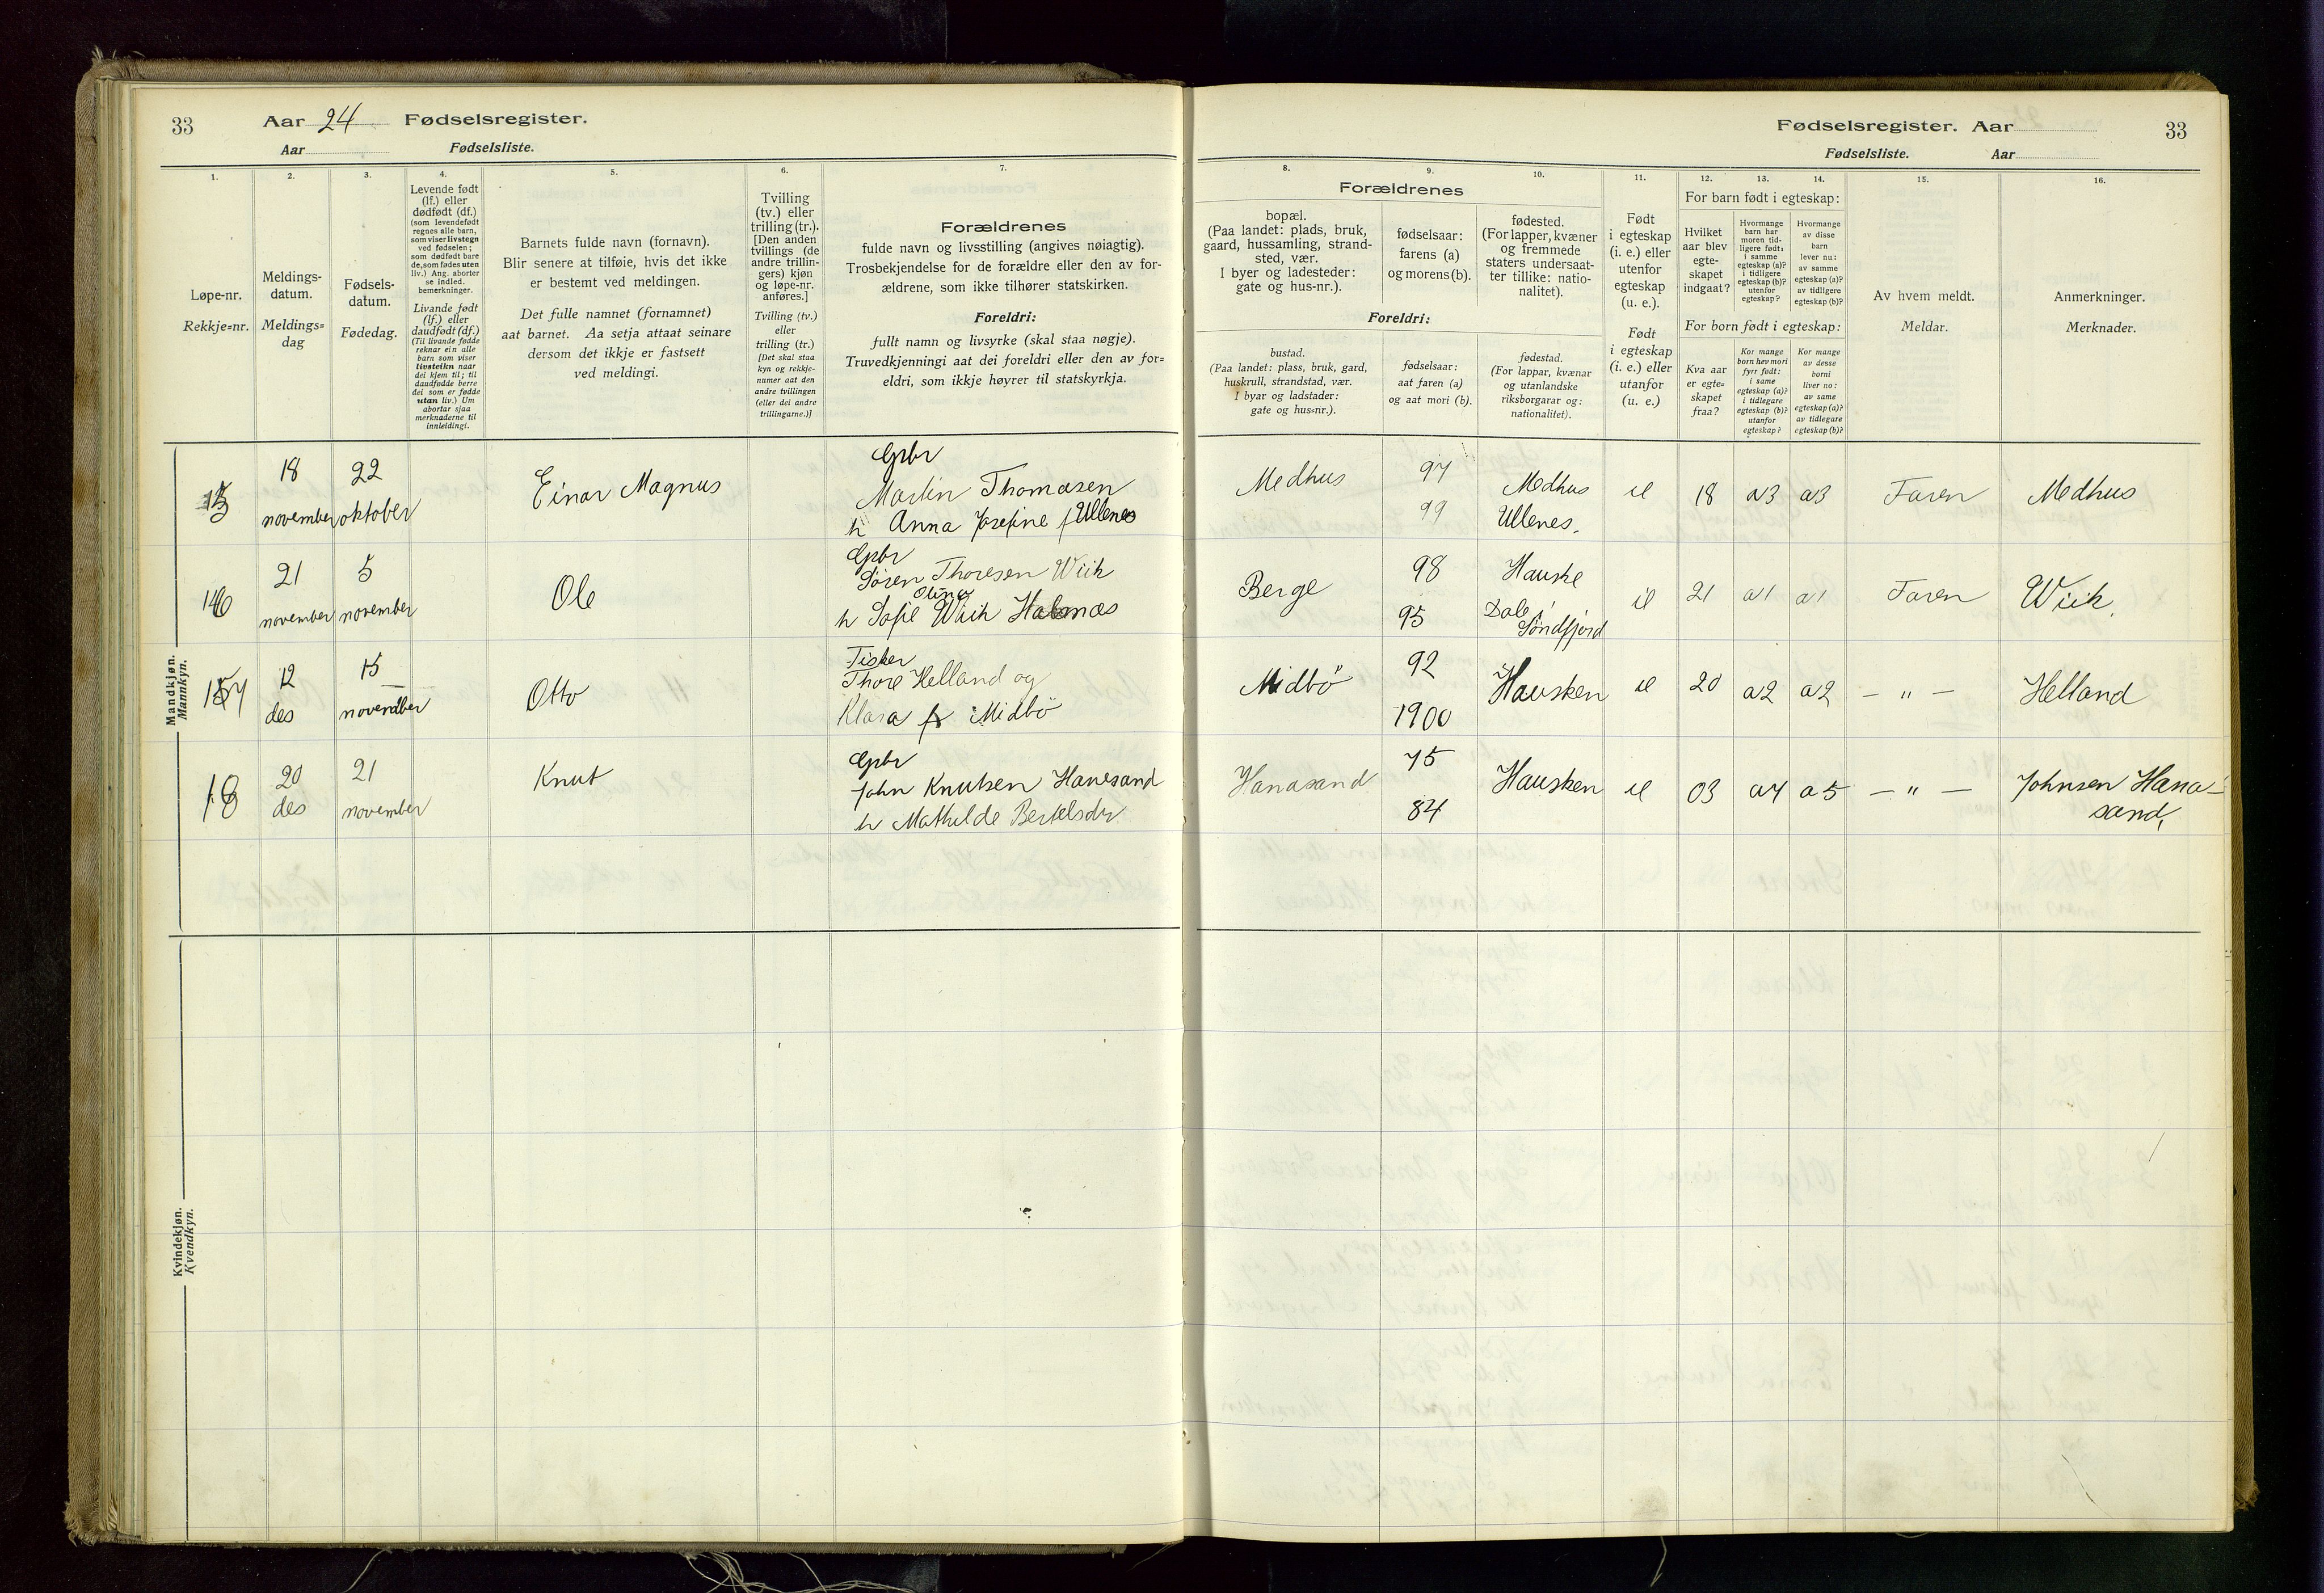 33 Aar 24 Fødselsregister.
Aar Fødselsliste.
1.
2.
3.
4.
5.
6.
7.
Løpe-nr.
Rekkje=nr.
Meldings-
datum.
Meldings=
dag
Fødsels-
datum.
Fødedag.
Levende født
(lf.) eller
dødfødt (df.)
(som levendefødt
regnes alle barn,
som viser livstegn
ved fødselen;
som dødfødt bare
de, som fødes uten
liv.) Ang. aborter
se indled.
bemerkninger.
Livande født
(lf.) eller
daudfødt (df.)
(Til livande fødde
reknar ein alle
barn som viser
livsteikn naar
dei kjem til; til
daudfødde berre
dei som er fødde
utan liv.) Um
abortar sjaa
merknaderne til
innleidingi.
Barnets fulde navn (fornavn).
Blir senere at tilføie, hvis det ikke
er bestemt ved meldingen.
Det fulle namnet (fornamnet)
aat barnet. Aa setja attaat seinare
dersom det ikkje er fastsett
ved meldingi.
Tvilling
(tv.) eller
trilling (tr.).
[Den anden
tvillings (de
andre trillin-
gers) kjøn
og løpe-nr.
anføres.]
Tvilling (tv.)
eller
trilling (tr.)
[Det skal staa
kyn og rekkje-
numer aat den
andre tvillingen
(eller dei andre
trillingarne.)]
Forældrenes
fulde navn og livsstilling (angives nøiagtig).
Trosbekjendelse for de forældre eller den av for-
ældrene, som ikke tilhører statskirken.
Foreldri:
fullt namn og livsyrke (skal staa nøgje).
Truvedkjenningi aat dei foreldri eller den av for=
eldri, som ikkje høyrer til statskyrkja.
Mandkjøn.
Mannkyn.
15 18 november 22 oktober Einar Magnus
Gbr
Martin Thomasen
h Anna Josefine f Ullenes
16 21 november 5 november Ole
Gbr
Søren Thoresen Wiik
Olina
h Sofie Wiik Halsnæs
17 12 des 15 november Otto
Fisker
Thore Helland og
Klara f Midbö
18 20 des 21 november Knut
Gbr
John Knutsen Hanesand
h Mathilde Bertelsdtr
Kvindekjøn.
Kvendkyn.
Fødselsregister. Aar 33
Fødselsliste. Aar
8.
9.
10.
11.
12.
13.
14.
15.
16.
Forældrenes
bopæl.
(Paa landet: plads, bruk,
gaard, hussamling, strand-
sted, vær.
I byer og ladesteder:
gate og hus-nr.).
fødselsaar:
farens (a)
og morens (b).
fødested.
(For lapper, kvæner
og fremmede
staters undersaat-
ter tillike: natio-
nalitet).
Foreldri:
bustad.
(Paa landet: plass, bruk, gard,
huskrull, strandstad, vær.
I byar og ladstader:
gate og hus=nr.).
fødselsaar:
aat faren (a)
og aat mori (b).
fødestad.
(For lappar, kvænar
og utanlandske
riksborgarar og:
nationalitet).
Født
i egteskap
(i. e.) eller
utenfor
egteskap
(u. e.).
Født
i egteskap
(i. e.) eller
utanfor
(u. e.)
For barn født i egteskap:
Hvilket
aar blev
egte-
skapet
indgaat?
Hvormange
barn har
moren tid-
ligere født:
i samme
egteskap (a)?
i tidligere
egteskap (b)?
utenfor
egteskap?
Hvormange
av disse
barn
lever nu:
av samme
egteskap (a)?
av tidligere
egteskap (b)?
For born født i egteskap:
Kva aar
er egte=
skapet
fraa?
Kor mange
born hev mori
fyrr født:
i same
egteskap (a)?
i tidlegare
egteskap (b)?
utanfor
egteskap?
Kor mange
av desse
borni
liver no:
av same
egteskap (a)?
av tidlegare
egteskap (b)?
Av hvem meldt.
Meldar.
Anmerkninger.
Merknader.
Medhus 97 99 Medhus Ullenes. ie 18 a3 a3 Faren Medhus
Berge 98 95 Hauske Dale i Söndfjord ie 21 a1 a1 Faren Wiik.
Midbö 92 1900 Hausken ie 20 a2 a2 — " — Helland
Hanasand 75 84 Hausken ie 03 a7 a5 — " — Johnsen Hana-
sand.